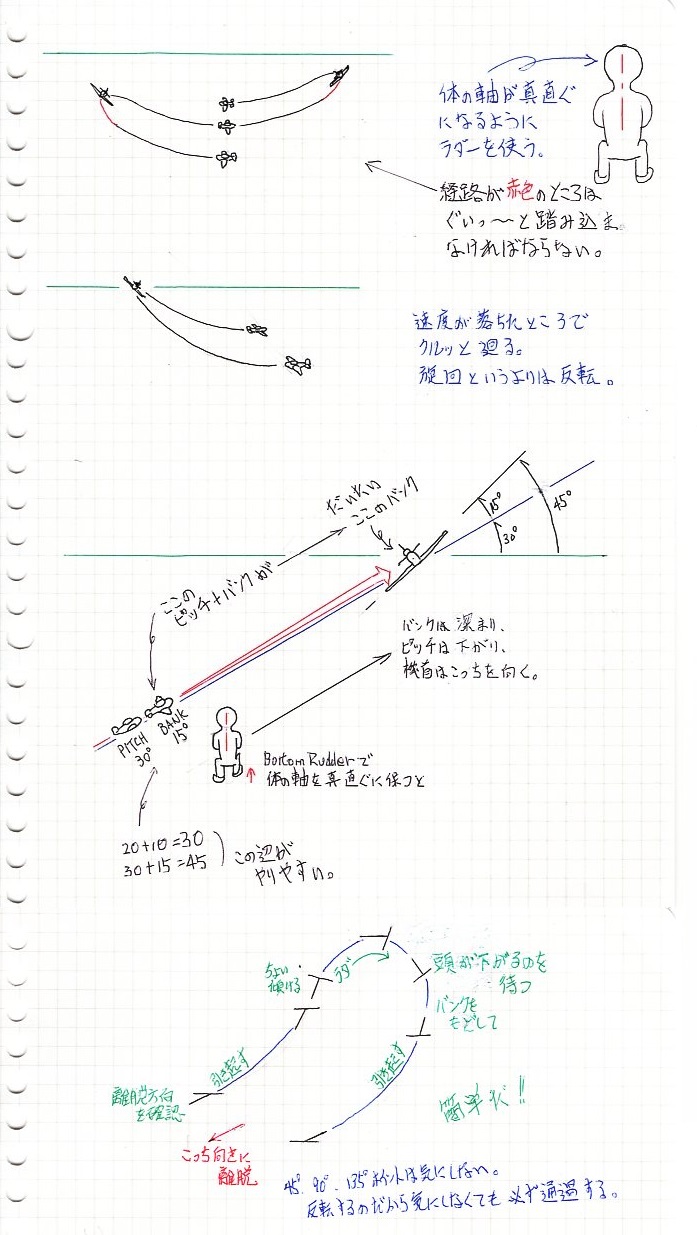 体の軸が真直ぐ
になるように
ラダーを使う。
経路が赤色のところは
ぐいっ〜と踏み込ま
なければならない。
速度が落ちたところで
クルッと廻る。
旋回というよりは反転。
だいたい
ここのバンク
15°
30°
45°
ここの
ピッチ+バンクが
バンクは深まり、
ピッチは下がり、
機首はこっちを向く。
PITCH
30°
BANK
15°
Bottom Rudderで
体の軸を真直ぐに保つと
20+10=30
30+15=45
この辺が
やりやすい。
ちょい
傾ける
ラダー
頭が下がるのを
待つ
バンクを
もどして
引き起す
引き起す
離脱方向
を確認
簡単だ!!
こっち向きに
離脱
45°. 90°. 135°ポイントは気にしない。
反転するのだから気にしなくても必ず通過する。